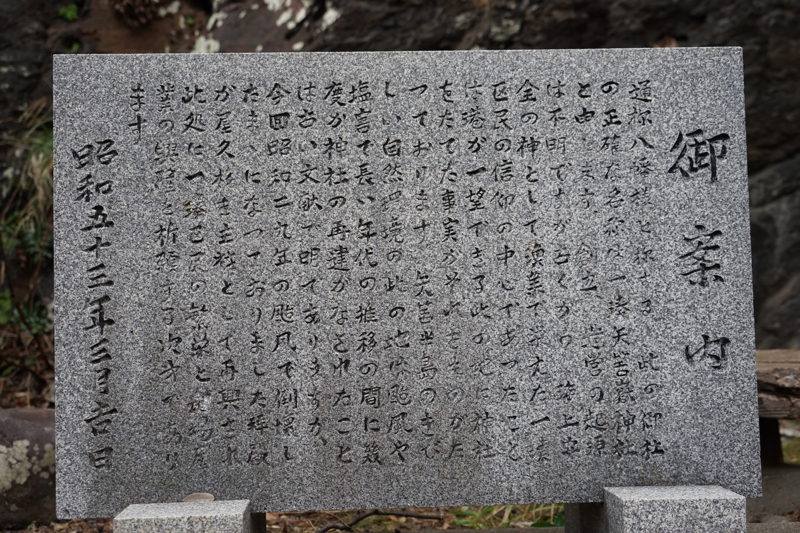 御案内
通称八幡様と称する此の御社
の正確な名称は一湊矢筈嶽神社
と申します。創立造宮の起源
は不明ですが古くから海上安
全の神として漁業で栄えた一湊
区民の信仰の中心であったことを
は港が一望できる此の地に神社
をたてた事実がそれをものがた
っております。矢筈半島のきび
しい自然環境の此の地は颱風や
塩害で長い年代の推移の間に幾
度か神社の再建がなされたこと
は古い文献で明でありますが、
今回昭和二九年の颱風で倒壊し
たまゝになっておりました拝殿
が屋久杉を主材として再興され
此処に一湊区民の繁栄と
業の興隆を祈願する次第であり
ます
昭和五十三年三月吉日